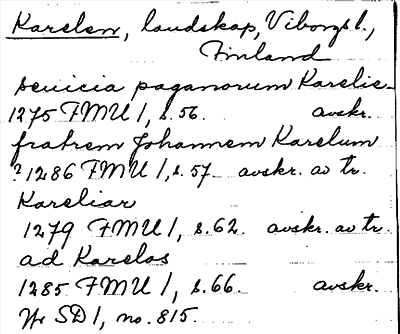 Karelen, landskap, Viborgs l.,
Finland
seuicia paganorum Karelie-
1275 FMU 1, s. 56. avskr.
fratrem Johannem Karelum
? 1286 FMU 1, s. 57 avskr. av tr.
Kareliar
1279 FMU 1, s. 62. avskr. av tr.
ad Karelos
1285 FMU 1, s. 66. avskr.
Tr SD 1, no. 815.